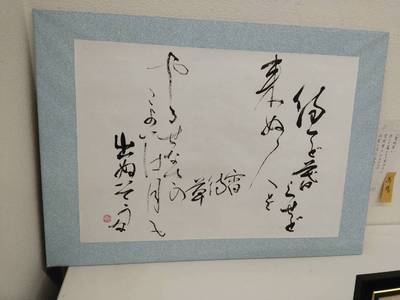 待てど暮らせど
来ぬ人を
宵待草の
やるせなさ
こよひは月も
出ぬさうな